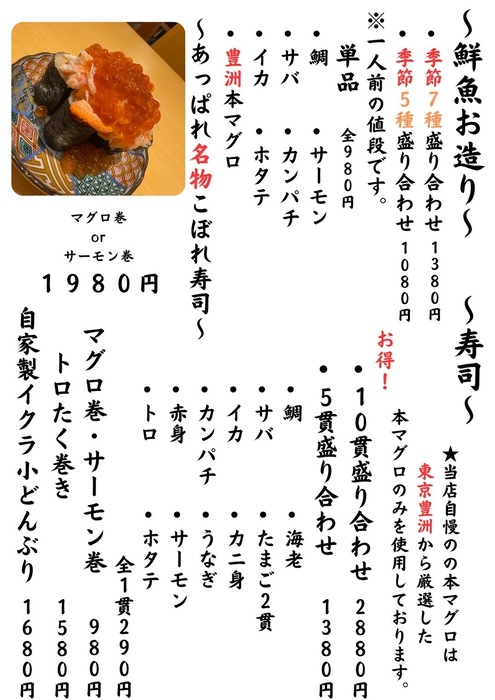 〜鮮魚お造り〜
・季節7種盛り合わせ 1380円
・季節5種盛り合わせ 1080円
※一人前の値段です。
単品 全980円
・鯛 ・サーモン
・サバ ・カンパチ
・イカ ・ホタテ
・豊洲本マグロ
〜あっぱれ名物こぼれ寿司〜
マグロ巻
or
サーモン巻
1980円
〜寿司〜
★当店自慢のの本マグロは
東京豊洲から厳選した
本マグロのみを使用しております。
お得!
・10貫盛り合わせ 2880円
・5貫盛り合わせ 1380円
・鯛 ・海老
・サバ ・たまご2貫
・イカ ・カニ身
・カンパチ ・うなぎ
・赤身 ・サーモン
・トロ ・ホタテ
全1貫290円
マグロ巻・サーモン巻 980円
トロたく巻き 1580円
自家製イクラ小どんぶり 1680円